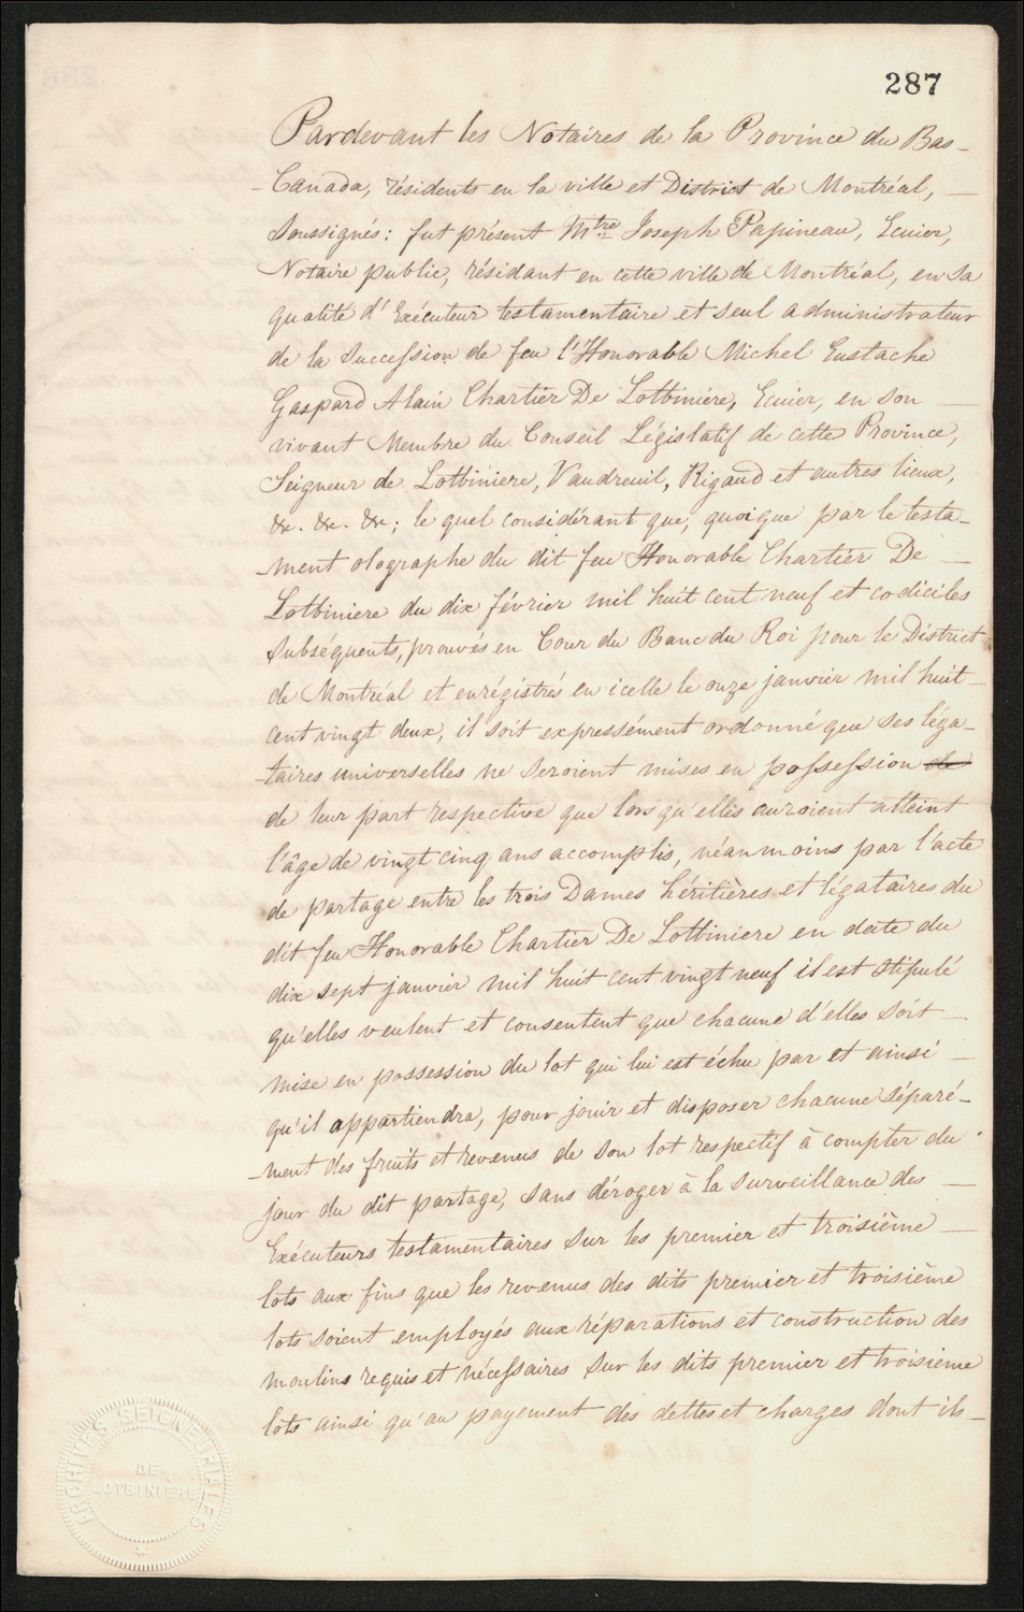 287
Pardevant les Notaires de la Province du Bas-
-Canada, résidents en la ville et District de Montréal, —
soussignés: fut présent Mtre Joseph Papineau, Ecuier,
Notaire public, résidant en cette ville de Montréal, en sa
qualité d'Exécuteur testamentaire et seul administrateur
de la Succession de feu l'Honorable Michel Eustache
Gaspard Alain Chartier De Lotbiniere, Ecuier, en son —
vivant Membre du Conseil Législatif de cette Province,
Seigneur de Lotbiniere, Vaudreuil, Rigaud et autres lieux,
&c. &c. &c; le quel considérant que, quoique par le testa-
-ment olographe du dit feu Honorable Chartier De —
Lotbiniere du dix février mil huit cent neuf et codiciles
subséquents, prouvés en Cour du Banc du Roi pour le District
de Montréal et enrégistrés en icelle le onze janvier mil huit-
cent vingt deux, il soit expressément ordonné que ses léga-
-taires universelles ne seroient mises en possession de
de leur part respective que lors qu'elles auroient atteint
l'âge de vingt cinq ans accomplis, néanmoins par l'acte
de partage entre les trois Dames héritières et légataires du
dit feu Honorable Chartier De Lotbiniere en date du
dix sept janvier mil huit cent vingt neuf il est stipulé
qu'elles veulent et consentent que chacune d'elles soit —
mise en possession du lot qui lui est échu par et ainsi —
qu'il appartiendra, pour jouir et disposer chacune séparé-
-ment des fruits et revenus de son lot respectif à compter du
jour du dit partage, sans déroger à la surveillance des —
Exécuteurs testamentaires sur les premier et troisième —
lots aux fins que les revenus des dits premier et troisième
lots soient employés aux réparations et construction des
moulins requis et nécessaires sur les dits premier et troisième
lots ainsi qu'au payement des dettes et charges dont ils-
ARCHIVES SEIGNEURIALES
DE
LOTBINIÈRE